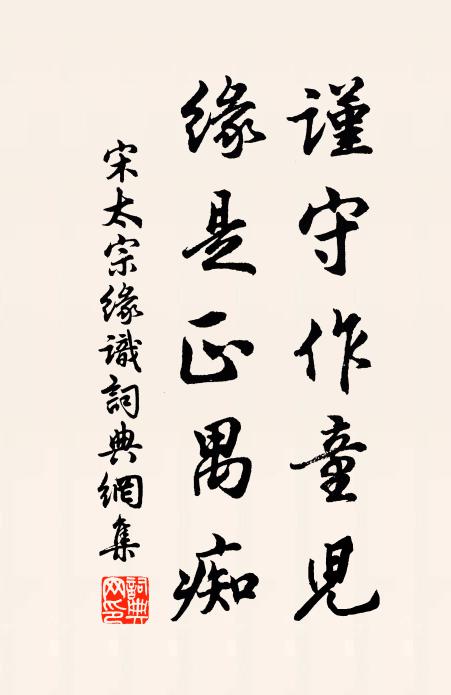 謹守作童児
緣是正禺痴
宋太宗緣識詞典網集
詞典網印